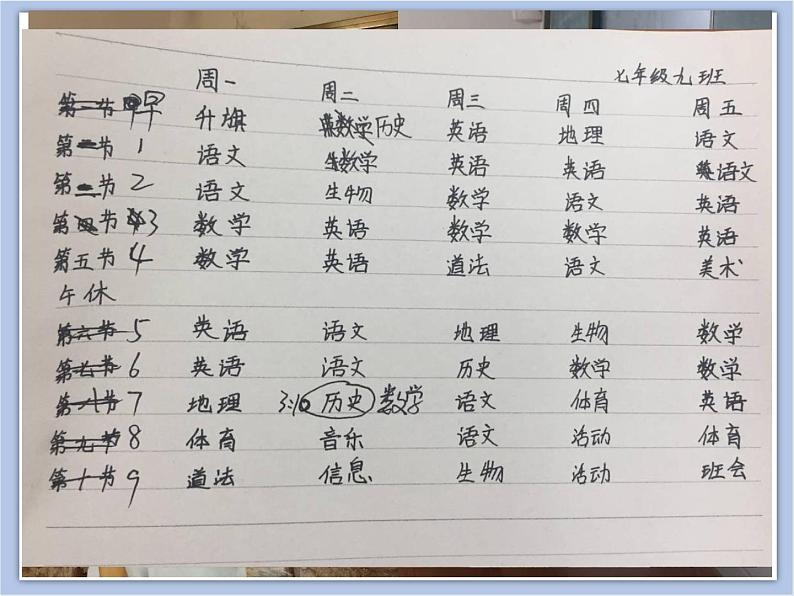 七年级九班
周一 周二 周三 周四 周五
第一节 早 升旗 数学历史 英语 地理 语文
第二节 1 语文 数学 英语 英语 语文
第三节 2 语文 生物 数学 语文 英语
第四节 3 数学 英语 数学 数学 英语
第五节 4 数学 英语 道法 语文 美术
午休
第六节 5 英语 语文 地理 生物 数学
第七节 6 英语 语文 历史 数学 数学
第八节 7 地理 3:10 历史 数学 语文 体育 英语
第九节 8 体育 音乐 语文 活动 体育
第十节 9 道法 信息 生物 活动 班会